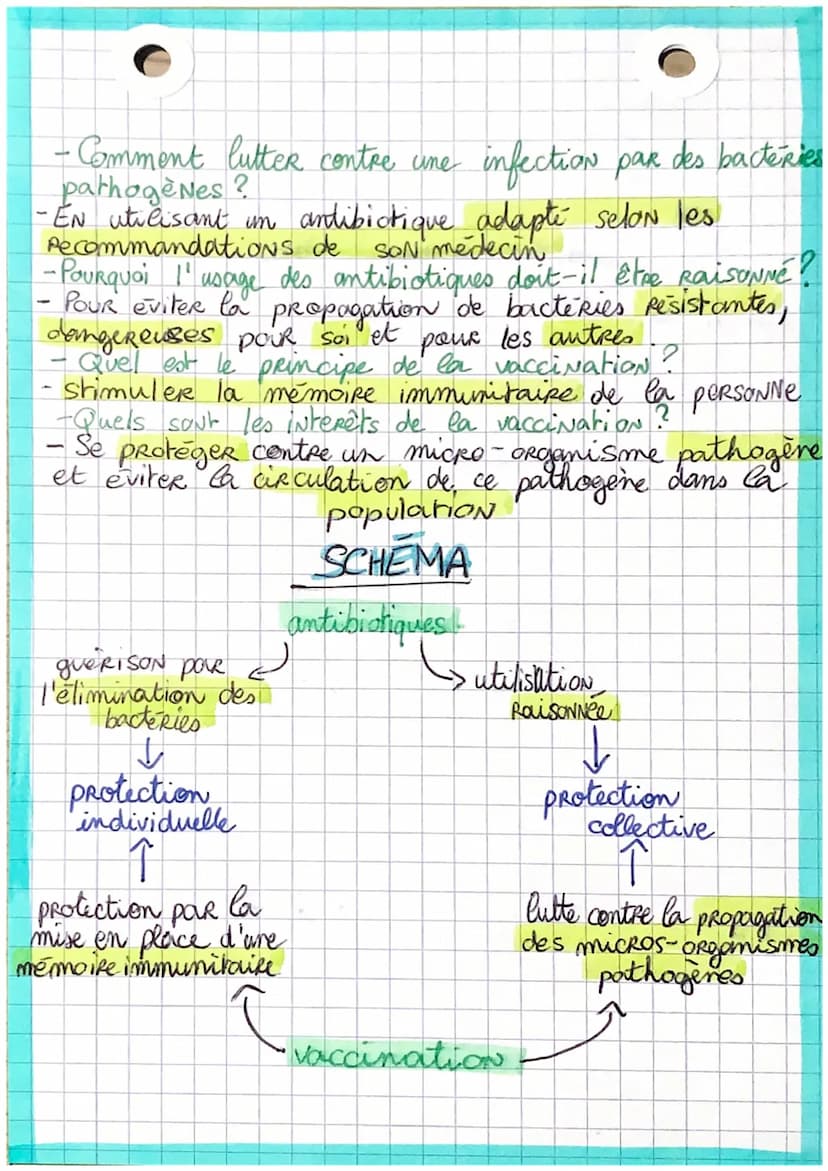 - Comment lutter contre une infection par des bactéries
pathogènes ?
- En utilisant un antibiotique adapté selon les
recommandations de son médecin
- Pourquoi l'usage des antibiotiques doit-il être raisonné ?
- Pour éviter la propagation de bactéries résistantes,
dangereuses pour soi et pour les autres.
- Quel est le principe de la vaccination ?
- stimuler la mémoire immunitaire de la personne
- Quels sont les interêts de la vaccination ?
- Se protéger contre un micro-organisme pathogène
et éviter la circulation de ce pathogène dans la
population
SCHÉMA
antibiotiques
guérison par
l'élimination des
bactéries
utilisation
raisonnée
protection
individuelle
protection
collective
protection par la
mise en place d'une
mémoire immunitaire
lutte contre la propagation
des micros-organismes
pathogènes
vaccination